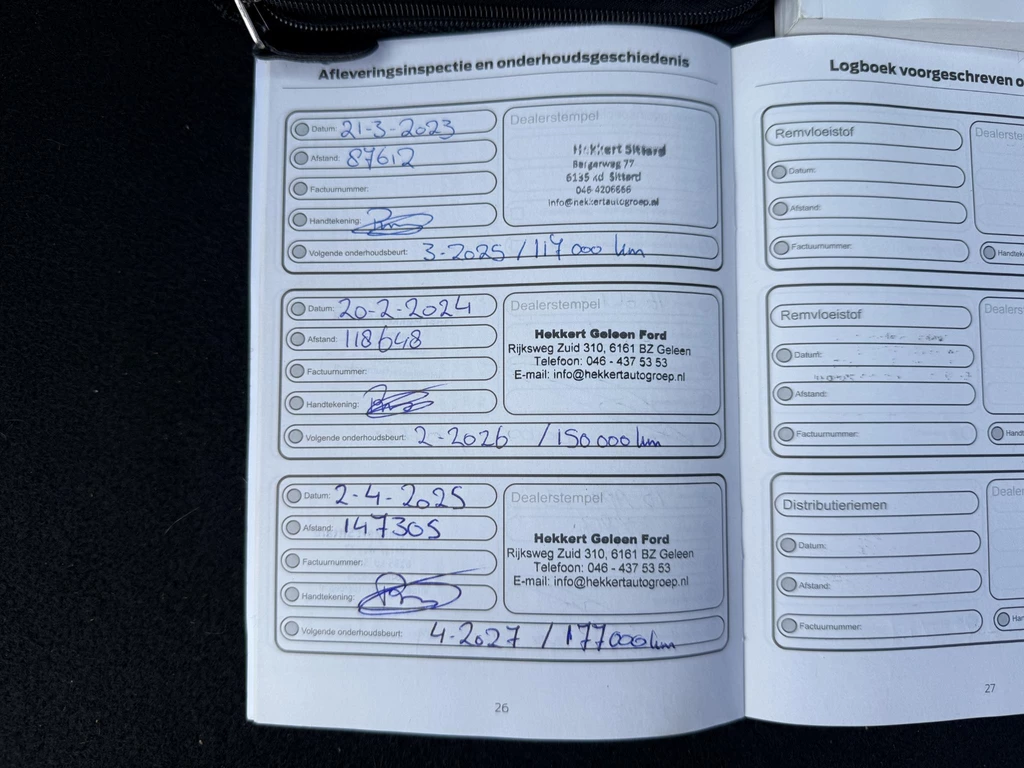 Afleveringsinspectie en onderhoudsgeschiedenis
Datum: 21-3-2023
Afstand: 87612
Factuurnummer:
Handtekening:
Volgende onderhoudsbeurt: 3-2025 / 117 000 km
Dealerstempel
Hekkert Sittard
Bergerweg 77
6135 kd Sittard
046 4206666
info@hekkertautogroep.nl
Datum: 20-2-2024
Afstand: 118648
Factuurnummer:
Handtekening:
Volgende onderhoudsbeurt: 2-2026 / 150.000 km
Dealerstempel
Hekkert Geleen Ford
Rijksweg Zuid 310, 6161 BZ Geleen
Telefoon: 046 - 437 53 53
E-mail: info@hekkertautogroep.nl
Datum: 2-4-2025
Afstand: 147305
Factuurnummer:
Handtekening:
Volgende onderhoudsbeurt: 4-2027 / 177000km
Dealerstempel
Hekkert Geleen Ford
Rijksweg Zuid 310, 6161 BZ Geleen
Telefoon: 046 - 437 53 53
E-mail: info@hekkertautogroep.nl
26
Logboek voorgeschreven o
Remvloeistof
Datum:
Afstand:
Factuurnummer:
Dealerste
Handtek
Remvloeistof
Datum:
Afstand:
Factuurnummer:
Dealers
Handt
Distributieriemen
Datum:
Afstand:
Factuurnummer:
Dealer
Han
27